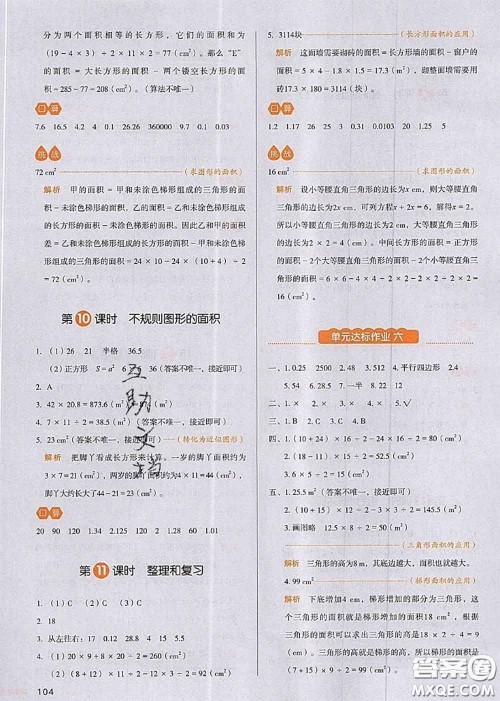 分为两个面积相等的长方形，它们的面积和为
(19-4×3)÷2×11×2=77(cm²)。那么“E”
的面积=大长方形的面积-两个镂空长方形的面
积=285-77=208(cm²)。(算法不唯一)
口算
7.6 16.5 4.2 4 0.1 26.26 360000 9.7 0.1 0.03
挑战
72 cm² (求图形的面积)
解析 甲的面积=甲和未涂色梯形组成的三角形的面
积-未涂色梯形的面积，乙的面积=乙和未涂色梯形
组成的长方形的面积-未涂色梯形的面积。因此甲和乙的面积
差=乙和未涂色梯形组成的长方形的面积-甲和未涂
色梯形组成的三角形的面积=24×10-24×(10+4)÷2
=72(cm²)。
第10课时 不规则图形的面积
1. (1)26 21 半格 36.5
(2)正方形 S=a² 6 36(答案不唯一，接近即可)
2. A
3. 42×20.8=873.6(m²)
4. 7×11÷2=38.5(m²)(答案不唯一，接近即可)
5. 23 cm²(答案不唯一，接近即可) (转化为近似图形)
解析 把脚丫看成长方形来计算。一岁的脚丫面积约为
3×7=21(cm²)，两岁的脚丫面积约为4×11=44(cm²)，
脚丫大约长大了44-21=23(cm²)。
口算
20 90 120 1.34 125 2 1.28 60 1.01
第11课时 整理和复习
1. (1)C (2)C (3)B
2. 18
3. 从左往右：17 0.12 28.8 15 0.4
4. (1)20×9+8×20÷2=260(cm²)
(2)(8+12)×11÷2-12×6÷2=74(cm²)
104
5. 3114块 (长方形面积的应用)
解析 这面墙需要砌砖的面积=长方形墙的面积-窗户的
面积=5×4-1.8×1.5=17.3(m²)，砌整面墙需要用
砖17.3×180=3114(块)。
口算
1.2 1.17 25 3 0.31 0.0103 20 1.25 5
挑战
16 cm² (求图形的面积)
解析 设小等腰直角三角形的边长为x cm，则大等腰直角
三角形的边长为2x cm，可列方程x+2x=6。解得x=2。
所以小等腰直角三角形的面积=2×2÷2=2(cm²)，大等腰直角三角形的面
积为2×2×2=4(cm)。中间长方形的面积=正方形
的面积-2个大等腰直角三角形的面积-2个小等腰直
角三角形的面积=6×6-4×4÷2×2-2×2÷2×2=
16(cm²)。
单元达标作业 六
一、1. 0.25 2500 2. 48 3. 一半 12 4. 平行四边形 2.4
5. 1.38 6. 22
二、1. × 2. × 3. × 4. × 5. √
三、1. B 2. C 3. A 4. C 5. B
四、1. (10+24)×(16÷2)÷2-24×10÷2=16(cm²)
2. (13+15)×12÷2-15×10÷2=93(cm²)
五、1. 5.5(答案不唯一，接近即可)
2. (10+15)×12÷2=150(cm²)
3. 画图略 12.5×8÷2=50(m²)
(三角形面积的应用)
解析 三角形的高为8 m，其底边越大，面积也就越大。
4. 99 cm² (梯形面积的应用)
解析 下底增加4 cm，梯形增加的部分为一个三角形，这个
三角形的面积就是梯形增加的面积18 cm²，根据三
角形的面积公式可以求出三角形的高是18×2÷4=9
(cm)，也就是梯形的高是9 cm。所以原梯形的面积是
(7+15)×9÷2=99(cm²)。
互
助
文
档
答案圈
MXQE.COM